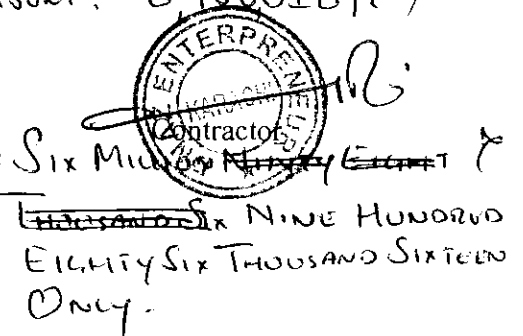 ENTERPRENEUR
KARACHI
Contractor
Six Million Ninety Eight &
Thousand Six Nine Hundred
Eighty Six Thousand Sixteen
Only.